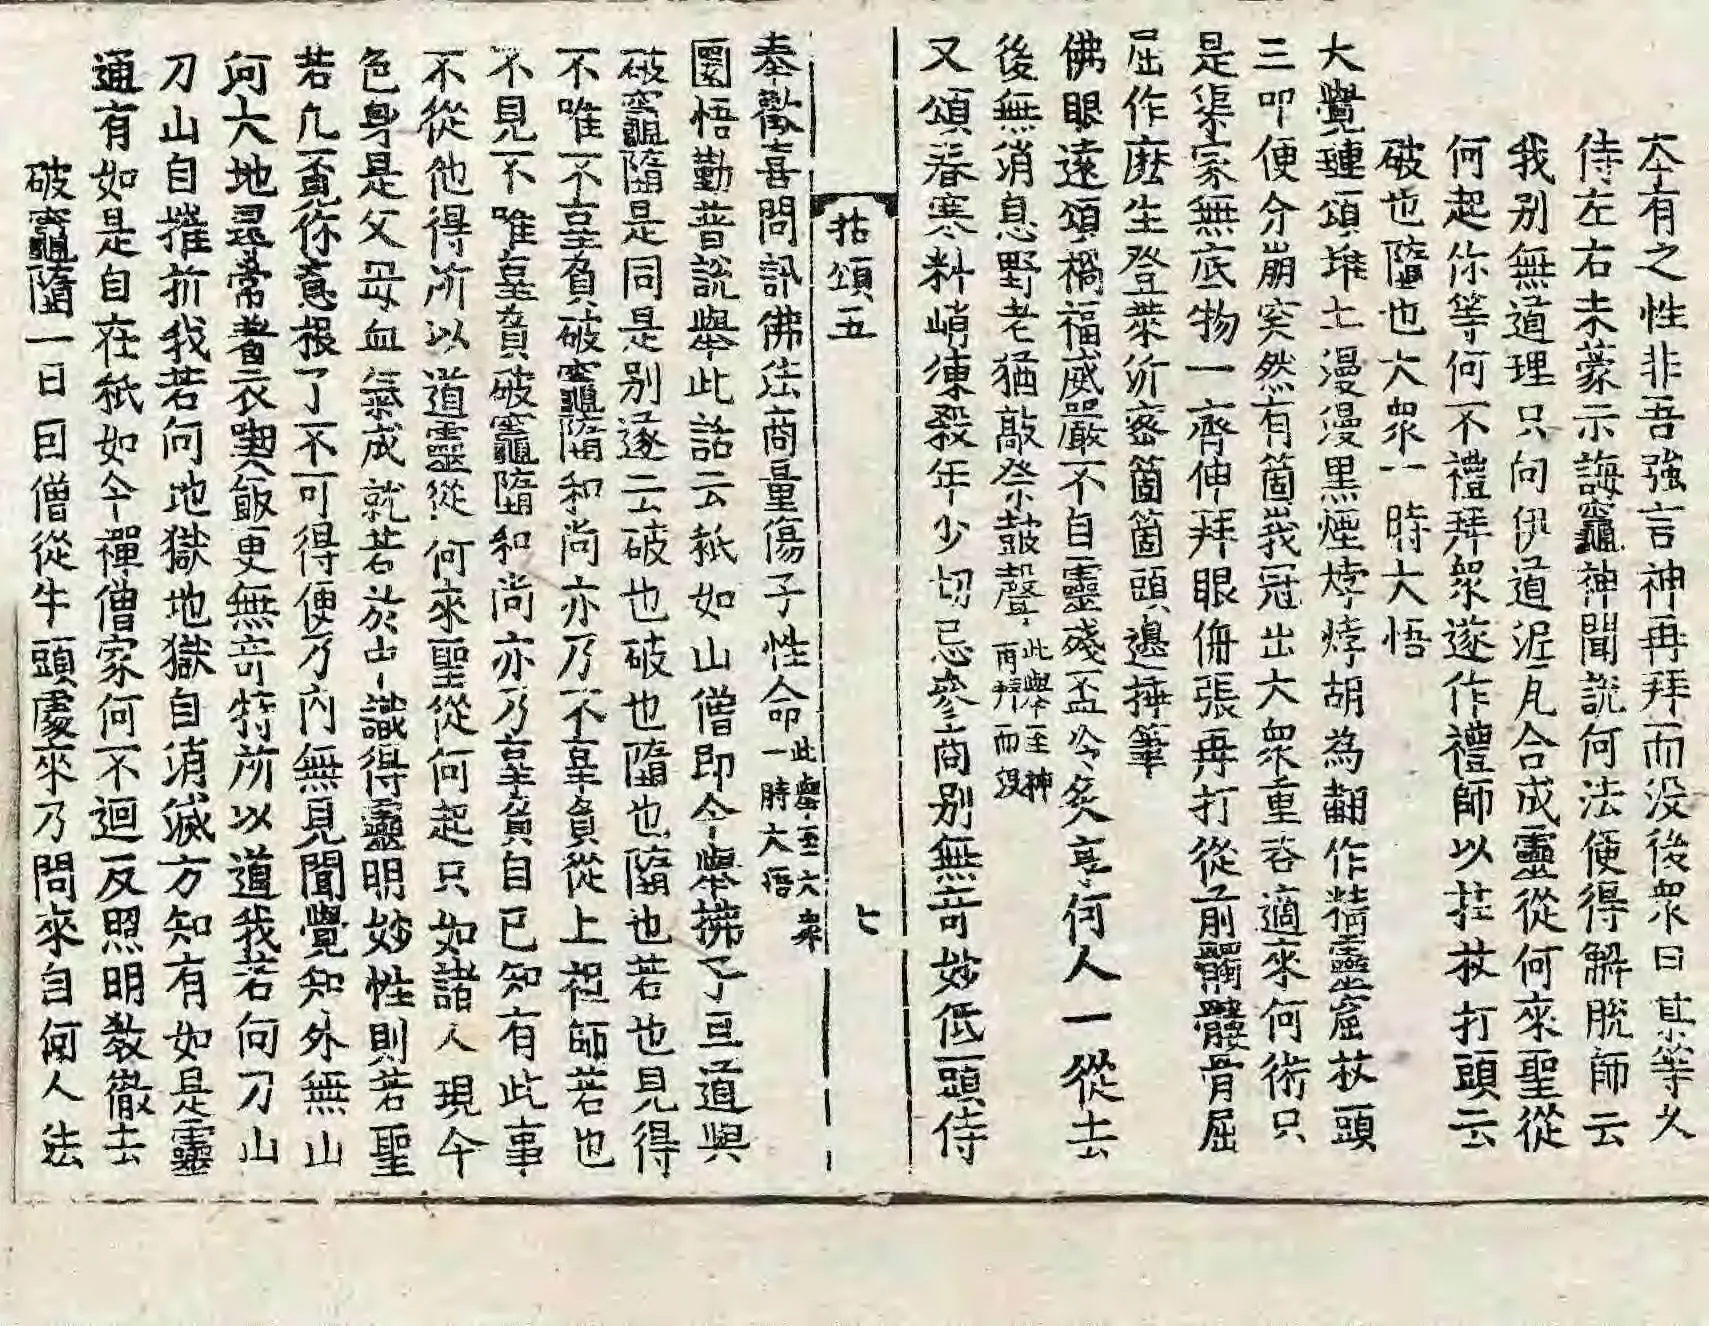 本有之性非吾強言神再拜而没後衆曰某等久
侍左右未蒙示誨竈神聞說何法便得解脱師云
我别無道理只向伊道泥瓦合成靈從何來聖從
何起你等何不禮拜衆遂作禮師以拄杖打頭云
破也墮也大衆一時大悟
大覺璉頌堆土漫漫黑煙㶿㶿胡為翻作精靈窟杖頭
三叩便分崩突然有箇峩冠出大衆重咨適來何術只
是渠家無底物一齊伸拜眼俻張再打從前髑髏骨屈
屈作麽生登葉沂寮箇箇頭邊揷筆
佛眼遠頌禍福威嚴不自靈殘盃冷炙享何人一從去
後無消息野老猶敲祭鼓聲 此擧至神再拜而没
又頌春寒料峭凍殺年少切忌參商别無奇妙低頭侍
拈頌五 七
奉歡喜問訊佛法商量傷子性命 此擧至大衆一時大悟
圜悟勤普說擧此話云秖如山僧即今擧揚了且道與
破竈墮是同是别遂云破也破也墮也墮也若也見得
不唯不辜負破竈墮和尚亦乃不辜負從上祖師若也
不見不唯辜負破竈墮和尚亦乃辜負自已知有此事
不從他得所以道靈從何來聖從何起只如諸人現今
色身是父母血氣成就若於中識得靈明妙性則若聖
若凡覔你意根了不可得便乃內無見聞覺知外無山
河大地尋常着衣喫飯更無奇特所以道我若向刀山
刀山自摧折我若向地獄地獄自消滅方知有如是靈
通有如是自在秖如今禪僧家何不迴反照明敎徹去
破竈墮一日因僧從牛頭處來乃問來自何人法